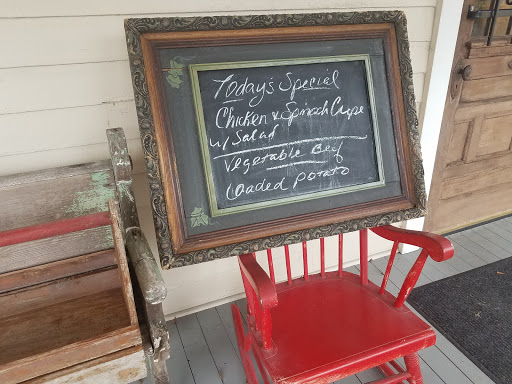 Today's Special
Chicken & Spinach Crepe
w/ Salad
Vegetable Beef
Loaded Potato